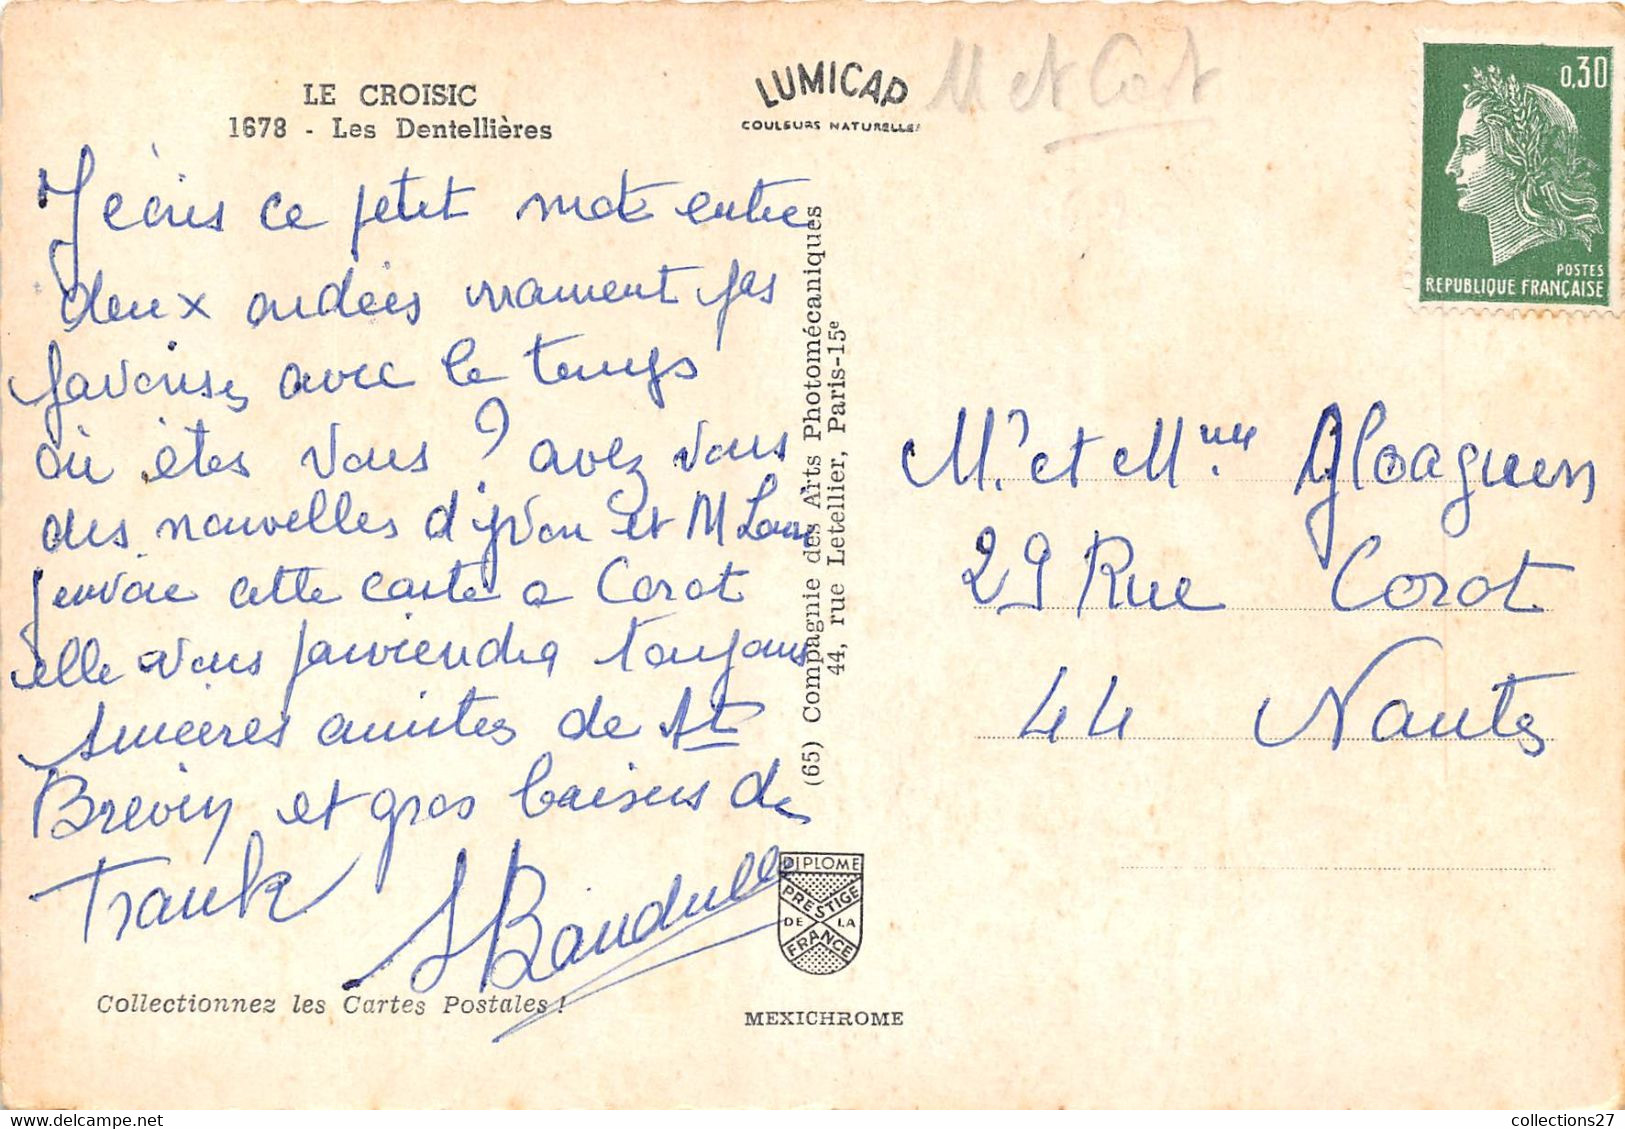 LE CROISIC
1678 - Les Dentellières
LUMICAP
COULEURS NATURELLES
M et
0,30
POSTES
REPUBLIQUE FRANÇAISE
J'écris ce petit mot entre
deux ondées vraiment pas
favorisés avec le temps
où êtes vous ? avez vous
des nouvelles d'yvon et M
j'envoie cette carte a Corot
elle vous parviendra toujours
sinceres amities de St
Brevin et gros baisers de
Franck
(65) Compagnie des Arts Photomécaniques
44, rue Letellier, Paris-15e
Mr et Mme Gloaguen
29 Rue Corot
44 Nantes
DIPLOME
PRESTIGE
DE LA
FRANCE
Collectionnez les Cartes Postales !
MEXICHROME
collections27